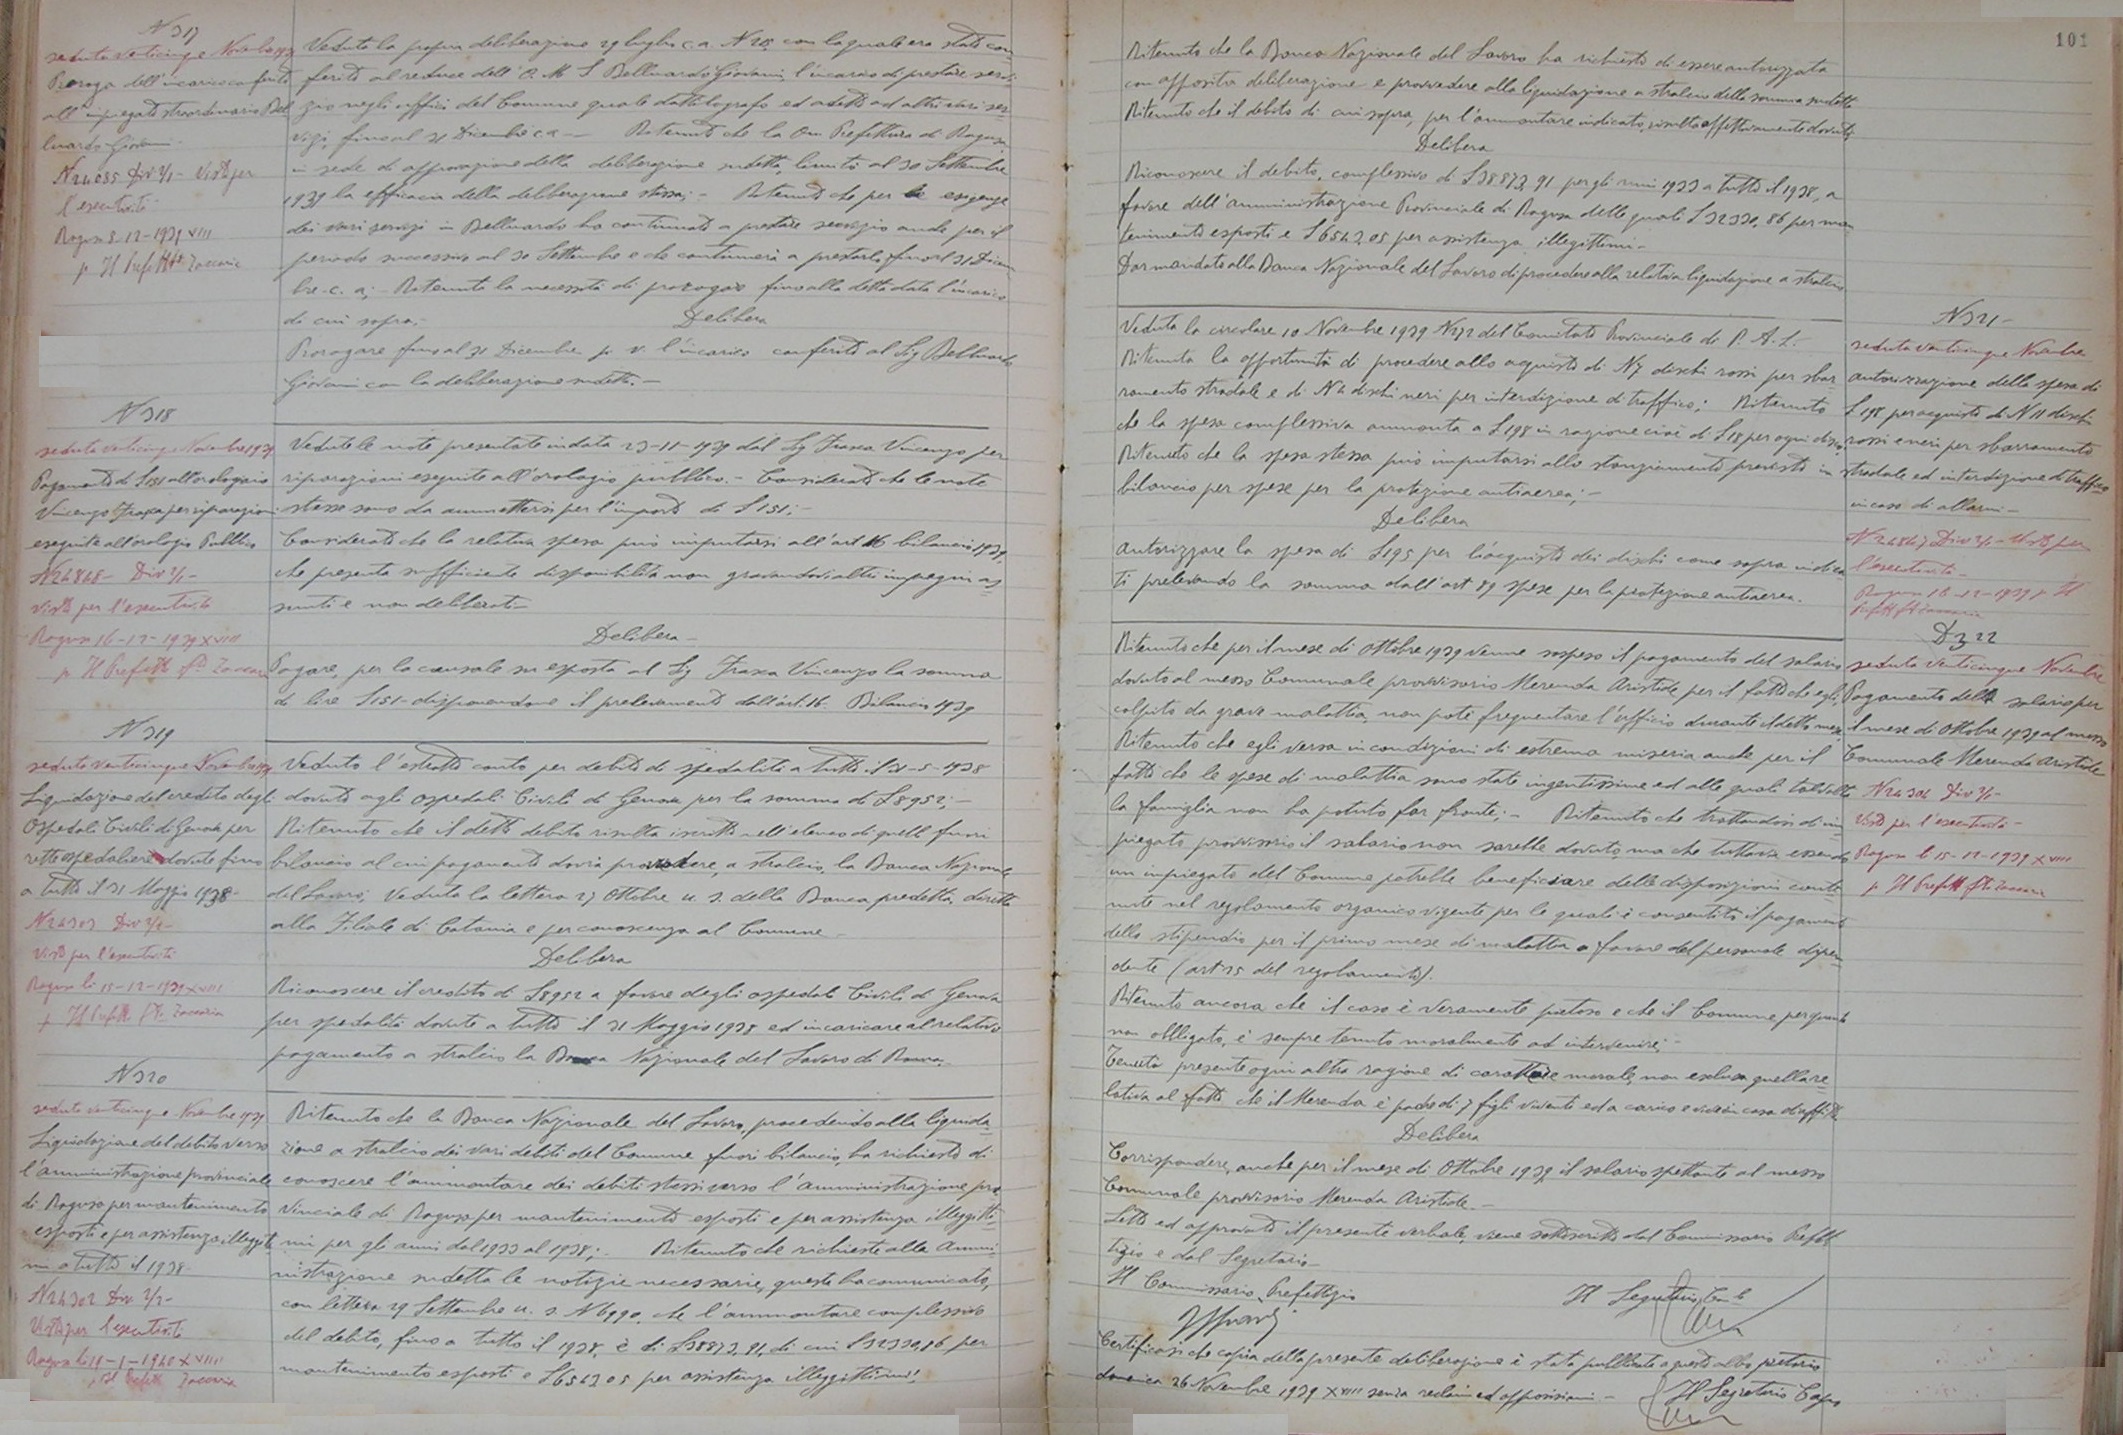 N 317
seduta venticinque Novembre 1939
Proroga dell'incarico conferito
all'impiegato straordinario Bel
luardo Giovanni
N 24035 Div 2/1 - Visto per
l'esecutività
Ragusa 8-12-1939 XVIII
p. Il Prefetto Zaccaria
Veduta la propria deliberazione 29 luglio c.a. N 218 con la quale era stato con
ferito al reduce dell' O. M. S Belluardo Giovanni l'incarico di prestare servi
zio negli uffici del Comune quale dattilografo ed adetto ad altri vari ser
vizi, fino al 31 Dicembre c.a. - Ritenuto che la On. Prefettura di Ragusa
in sede di approvazione della deliberazione sudetta, limitò al 30 Settembre
1939 la efficacia della deliberazione stessa; - Ritenuto che per le esigenze
dei vari servizi in Belluardo ha continuato a prestare servizio anche per il
periodo successivo al 30 Settembre e che continuerà a prestarlo fino al 31 Dicem
bre c. a; - Ritenuta la necessità di prorogare fino alla detta data l'incarico
di cui sopra;
Delibera
Prorogare fino al 31 Dicembre p. v. l'incarico conferito al Sig Belluardo
Giovanni con la deliberazione sudetta. -
N 318
seduta venticinque Novembre 1939
Pagamento di L 151 all'orologiaio
Vincenzo Frasca per riparazioni
eseguite all'orologio Pubblico
N 24848 - Div 2/1 -
Visto per l'esecutività
Ragusa 16-12-1939 XVIII
p Il Prefetto fto Zaccaria
Vedute le note presentate in data 23-11-1939 dal Sig Frasca Vincenzo per
riparazioni eseguite all'orologio pubblico. - Considerato che le note
stesse sono da ammettersi per l'importo di L 151; -
Considerato che la relativa spesa può imputarsi all'art 16 bilancio 1939,
che presenta sufficiente disponibilità non gravandovi altri impegni as
sunti e non deliberati -
Delibera -
Pagare, per la causale su esposta al Sig Frasca Vincenzo la somma
di lire L 151 - disponendone il prelevamento dall'art. 16 Bilancio 1939
N 319
seduta venticinque Novembre 1939
Liquidazione del credito degli
Ospedali Civili di Genova per
rette ospedaliere dovute fino
a tutto il 31 Maggio 1938 -
N 24303 Div 2/1 -
Visto per l'esecutività
Ragusa lì 15-12-1939 XVIII
p Il Prefetto fto Zaccaria
Veduto l'estratto conto per debito di spedalità a tutto il 31-5-1938
dovuto agli Ospedali Civili di Genova per la somma di L 8952; -
Ritenuto che il detto debito risulta iscritto nell'elenco di quelli fuori
bilancio al cui pagamento dovrà provvedere, a stralcio, la Banca Nazionale
del Lavoro; Veduta la lettera 27 Ottobre u. s. della Banca predetta, diretta
alla Filiale di Catania e per conoscenza al Comune -
Delibera
Riconoscere il credito di L 8952 a favore degli ospedali Civili di Genova
per spedalità dovute a tutto il 31 Maggio 1938 ed incaricare al relativo
pagamento a stralcio la Banca Nazionale del Lavoro di Roma.
N 320
seduta venticinque Novembre 1939
Liquidazione del debito verso
l'amministrazione provinciale
di Ragusa per mantenimento
esposti e per assistenza illegitti
mi a tutto il 1938 -
N 24302 Div. 2/1 -
Visto per l'esecutività
Ragusa lì 19-1-1940 XVIII
p Il Prefetto Zaccaria
Ritenuto che la Banca Nazionale del Lavoro, procedendo alla liquida
zione a stralcio dei vari debiti del Comune fuori bilancio, ha richiesto di
conoscere l'ammontare dei debiti stessi verso l'amministrazione pro
vinciale di Ragusa per mantenimento esposti e per assistenza illeggitti
mi per gli anni dal 1933 al 1938; - Ritenuto che richieste alla Ammi
nistrazione sudetta le notizie necessarie, questa ha comunicato,
con lettera 29 Settembre u. s. N 6990, che l'ammontare complessivo
del debito, fino a tutto il 1938, è di L 38873,91, di cui L 32330,86 per
mantenimento esposti e L 6543,05 per assistenza illeggittimi;
101
Ritenuto che la Banca Nazionale del Lavoro ha richiesto di essere autorizzata
con apposita deliberazione e provvedere alla liquidazione a stralcio della somma sudetta
Ritenuto che il debito di cui sopra, per l'ammontare indicato, risulta effettivamente dovuto;
Delibera
Riconoscere il debito, complessivo di L 38873,91 per gli anni 1933 a tutto il 1938, a
favore dell'amministrazione Provinciale di Ragusa delle quali L 32330,86 per man
tenimento esposti e L 6543,05 per assistenza illegittimi -
Dar mandato alla Banca Nazionale del Lavoro di procedere alla relativa liquidazione a stralcio
Veduta la circolare 10 Novembre 1939 N 272 del Comitato Provinciale di P. A. L. -
Ritenuta la opportunità di procedere allo acquisto di N 7 dischi rossi per sbar
ramento stradale e di N 4 dischi neri per interdizione di traffico; Ritenuto
che la spesa complessiva ammonta a L 198 in ragione cioè di L 18 per ogni disco;
Ritenuto che la spesa stessa può imputarsi allo stanziamento previsto in
bilancio per spese per la protezione antiaerea; -
Delibera
Autorizzare la spesa di L 195 per l'acquisto dei dischi come sopra indica
ti prelevando la somma dall'art 89 spese per la protezione antiaerea.
N 321 -
seduta venticinque Novembre
Autorizzazione della spesa di
L 198 per acquisto di N 11 dischi
rossi e neri per sbarramento
stradale ed interdizione di traffico
in caso di allarmi -
N 24847 Div 2/1 - Visto per
l'esecutività -
Ragusa 16-12-1939 p Il
Prefetto fto Zaccaria
D 322
seduta venticinque Novembre
Pagamento della salario per
il mese di Ottobre 1939 al messo
Comunale Merenda Aristide
N 24304 Div 2/1 -
Visto per l'esecutività -
Ragusa lì 15-12-1939 XVIII
p Il Prefetto fto Zaccaria
Ritenuto che per il mese di Ottobre 1939 venne sospeso il pagamento del salario
dovuto al messo Comunale provvisorio Merenda Aristide per il fatto che egli,
colpito da grave malattia, non potè frequentare l'ufficio durante il detto mese
Ritenuto che egli versa in condizioni di estrema miseria anche per il
fatto che le spese di malattia sono state ingentissime ed alle quali talvolta
la famiglia non ha potuto far fronte; - Ritenuto che trattandosi di im
piegato provvisorio il salario non sarebbe dovuto, ma che tuttavia essendo
un impiegato del Comune potrebbe beneficiare delle disposizioni conte
nute nel regolamento organico vigente per le quali è consentito il pagamento
dello stipendio per il primo mese di malattia a favore del personale dipen
dente (art 35 del regolamento).
Ritenuto ancora che il caso è veramente pietoso e che il Comune per quanto
non obbligato, è sempre tenuto moralmente ad intervenire; -
Tenuta presente ogni altra ragione di carattere morale, non esclusa quella re
lativa al fatto che il Merenda è padre di 7 figli viventi ed a carico e vive in casa d'affitto
Delibera
Corrispondere, anche per il mese di Ottobre 1939 il salario spettante al messo
Comunale provvisorio Merenda Aristide. -
Letto ed approvato il presente verbale, viene sottoscritto dal Commissario Prefet
tizio e dal Segretario -
Il Commissario Prefettizio
Il Segretario Com.le
Certificasi che copia della presente deliberazione è stata pubblicata a questo albo pretorio
domenica 26 Novembre 1939 XVIII senza reclami ed opposizioni. -
Il Segretario Capo